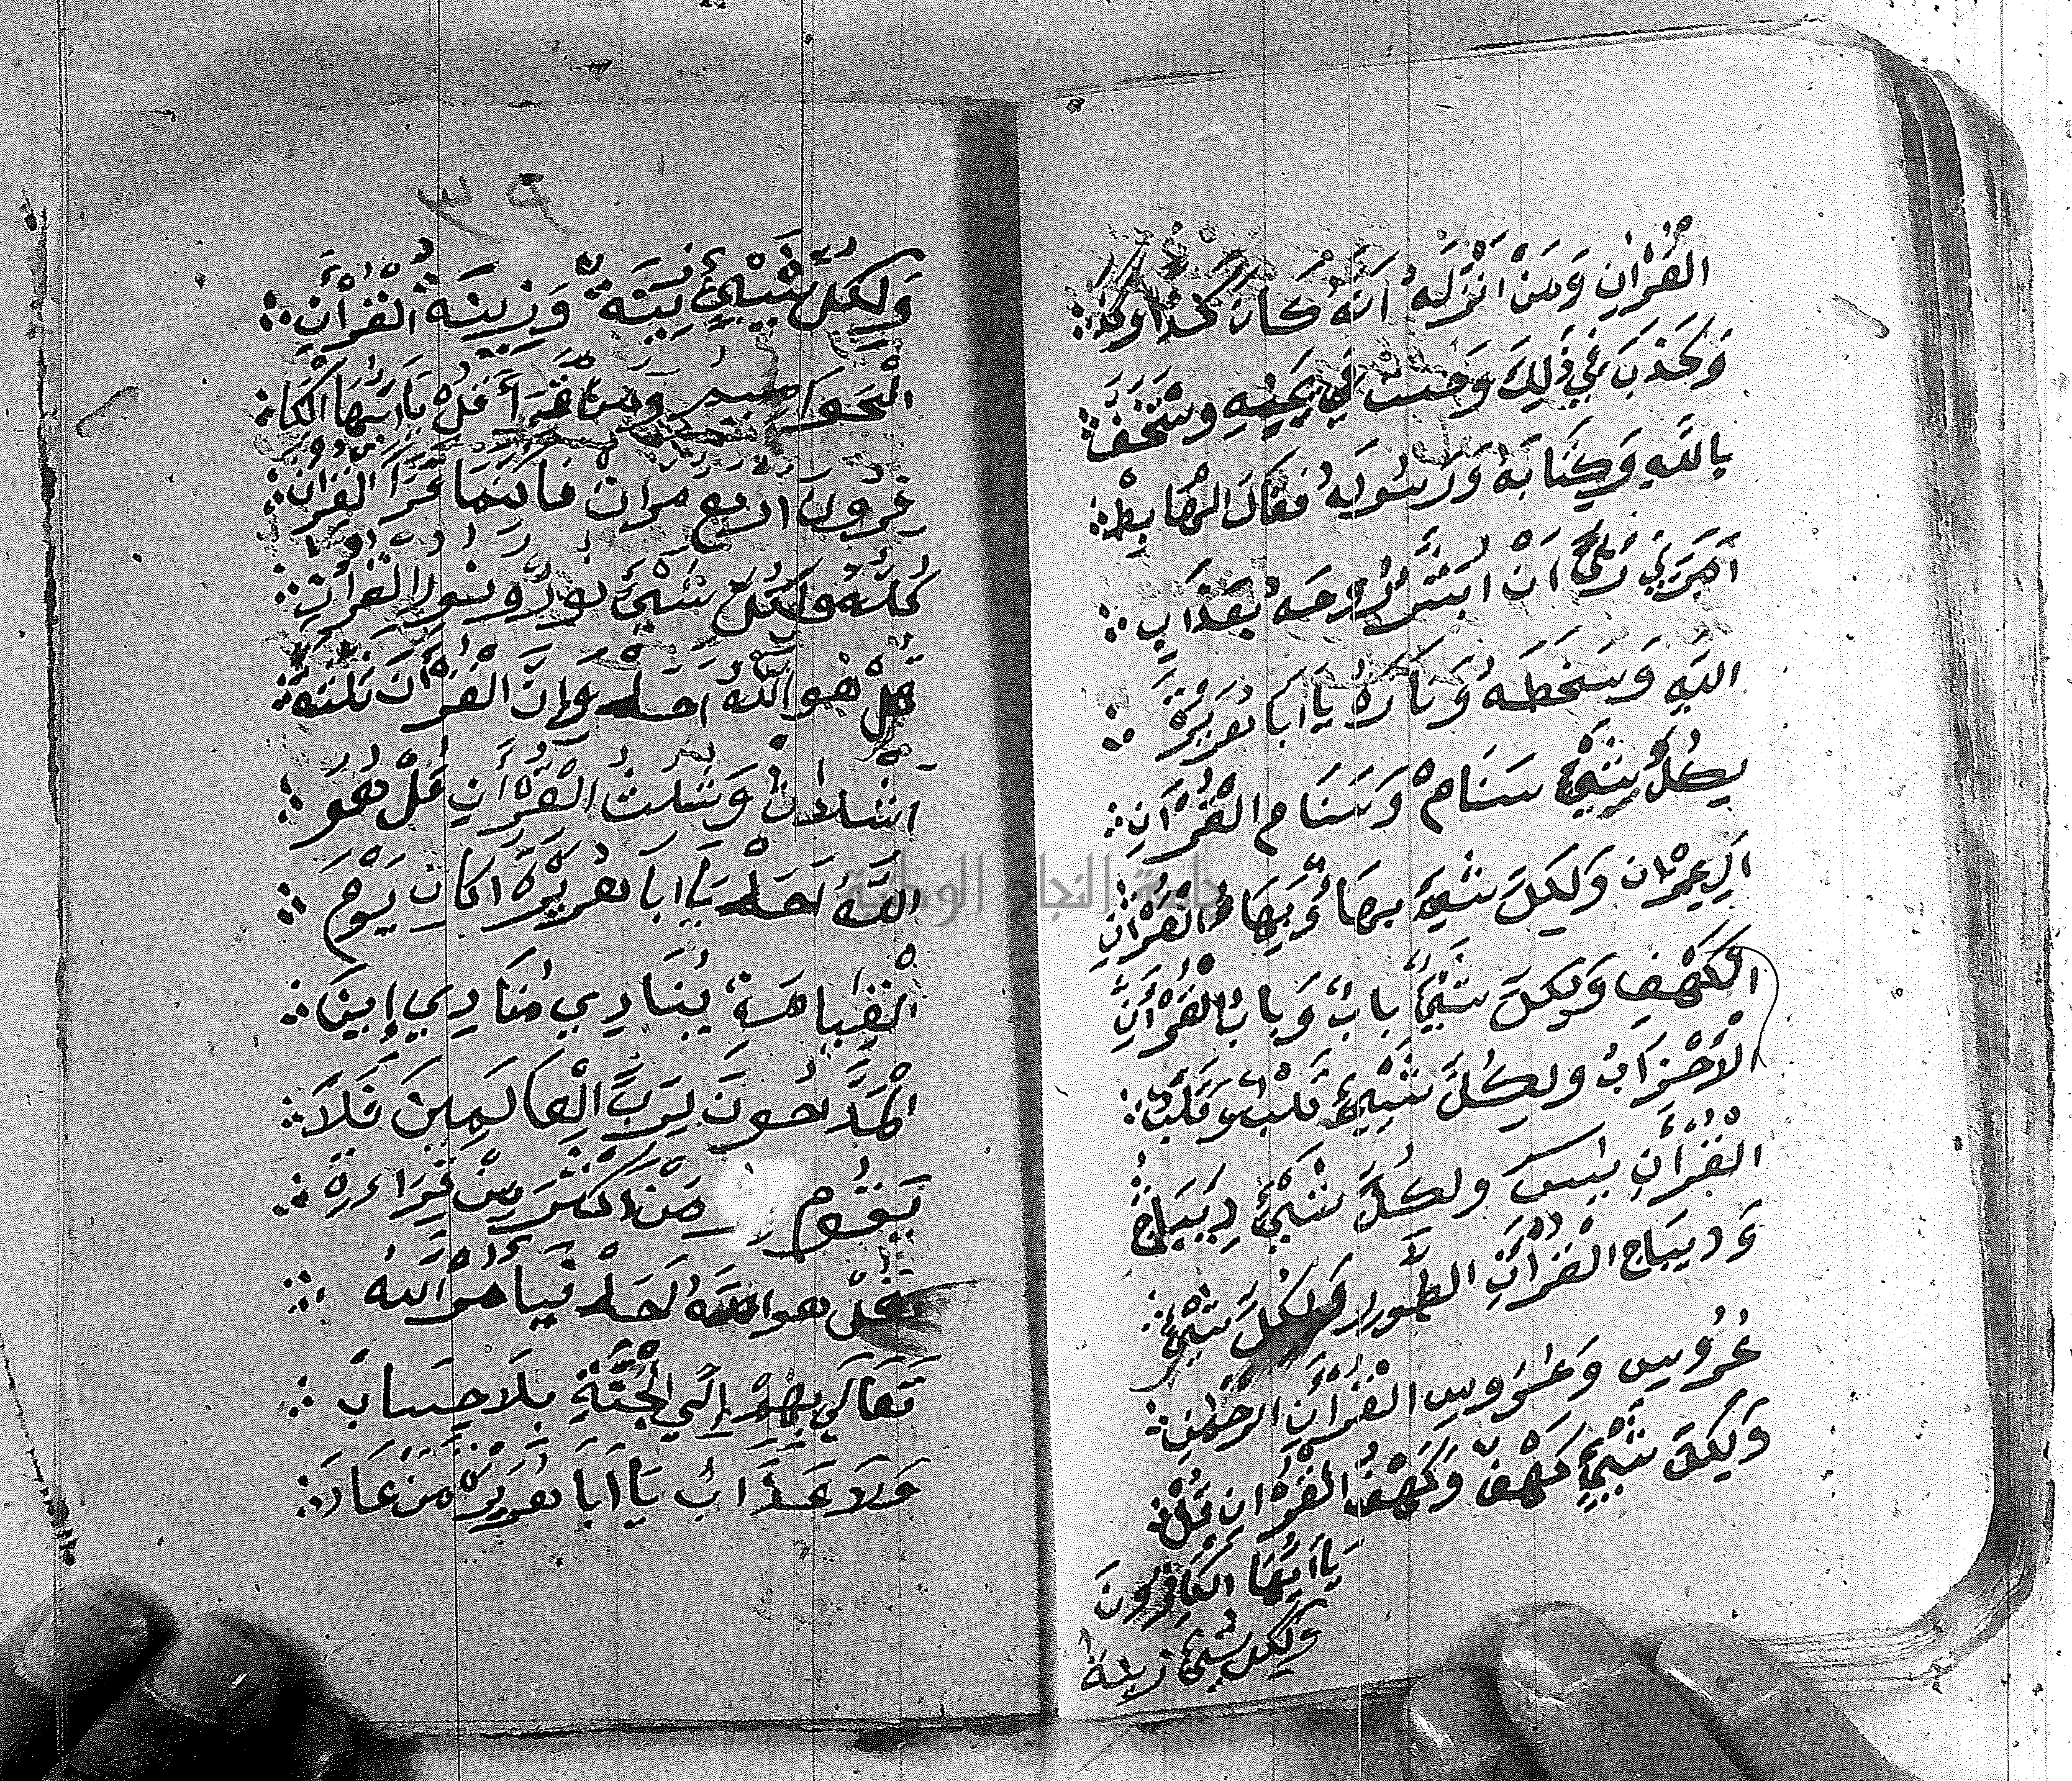 القُرْانِ وَمَنْ انْزَلَهُ انَّهُ كَانَ كَذَا وَكَذَا
وَكَذَبَ فِي ذَلِكَ وَحَنَثَ فِي يَمِينِهِ وَسْتَخَفَّ
بِاللَّهِ وَكِتَابَهُ وَرَسُولَهُ فَقَالَ الْهَابِطْ
امَرَنِي رَبِّي اَنْ ابَشِّرُ رُوحَهُ بِعَذَابِ
اللَّهِ وَسَخَطَهُ وَنَارَهُ يَا ابَا هُرَيْرَةَ
لِكُلِّ شَيْءٍ سَنَامٌ وَسَنَامِ الْقُرْآنِ
الِ عِمْرَان وَلِكُلِّ شَيْءٍ بَهَاءٌ وَبَهَاءُ الْقُرْآنِ
الْكَهْفِ وَلِكُلِّ شَيْءٍ بابٌ وَبابُ الْقُرْآنِ
الْأَحْزَابُ وَلِكُلِّ شَيْءٍ قَلْبٌ وَقَلْبُ
الْقُرْآنِ يٰسَ وَلِكُلِّ شَيْءٍ دِيبَاجٌ
وَدِيبَاج الْقُرْآنِ الطُّورِ وَلِكُلِّ شَيْءٍ
عُرُوسِ وَعَرُوسِ الْقُرْآنِ الرَّحْمٰنِ
وَلِكُلِّ شَيْءٍ كَهْفٌ وَكَهْفُ الْقُرْانِ قُلْ
يَا ايُّهَا الْكَافِرُونَ
وَلِكُلِّ شَيْءٍ زينة
٣٩
وَلِكُلِّ شَيْءٍ زِينَةٌ وَزِينَةُ الْقُرْآنِ
الْحَوَامِيم وَمَنْ قَرَأَ قُلْ يَا ايُّهَا الْكَا
فِرُونَ اربع مرات فَاكَنَّمَا قَرَأَ الْقُرْانَ
كُلَّهُ وَلِكُلِّ شَيْءٍ نُورٌ وَنُورُ الْقُرْآنِ
قُلْ هُوَ اللَّهُ احَدْ وَإِنَّ الْقُرْآنَ ثَلَثَةَ
اثلاث وَثُلُثُ الْقُرْآنِ قُلْ هُوَ
اللَّهُ احَدْ يَا ابَا هُرَيْرَةَ اذا كان يَوْمُ
الْقِيَامَةِ يُنَادِي مُنَادِي ايْنَ
الْمَدَّاحُونَ لِرَبِّ الْعَالَمِينَ فَلَا
يَقُوم مَنْ اكْثَرَ مِنْ قِرَاءَةِ
قُلْ هو اللَّهُ احَدْ فَيَأْمُرْ اللَّهُ
تَعَالَي بِهِمْ إِلَي الْجَنَّةِ بِلَا حِسَابٌ
وَلَا عَذَابٌ يَا ابَا هُرَيْرَةَ مَنْ عَادَ
جامعة النجاح الوطنية